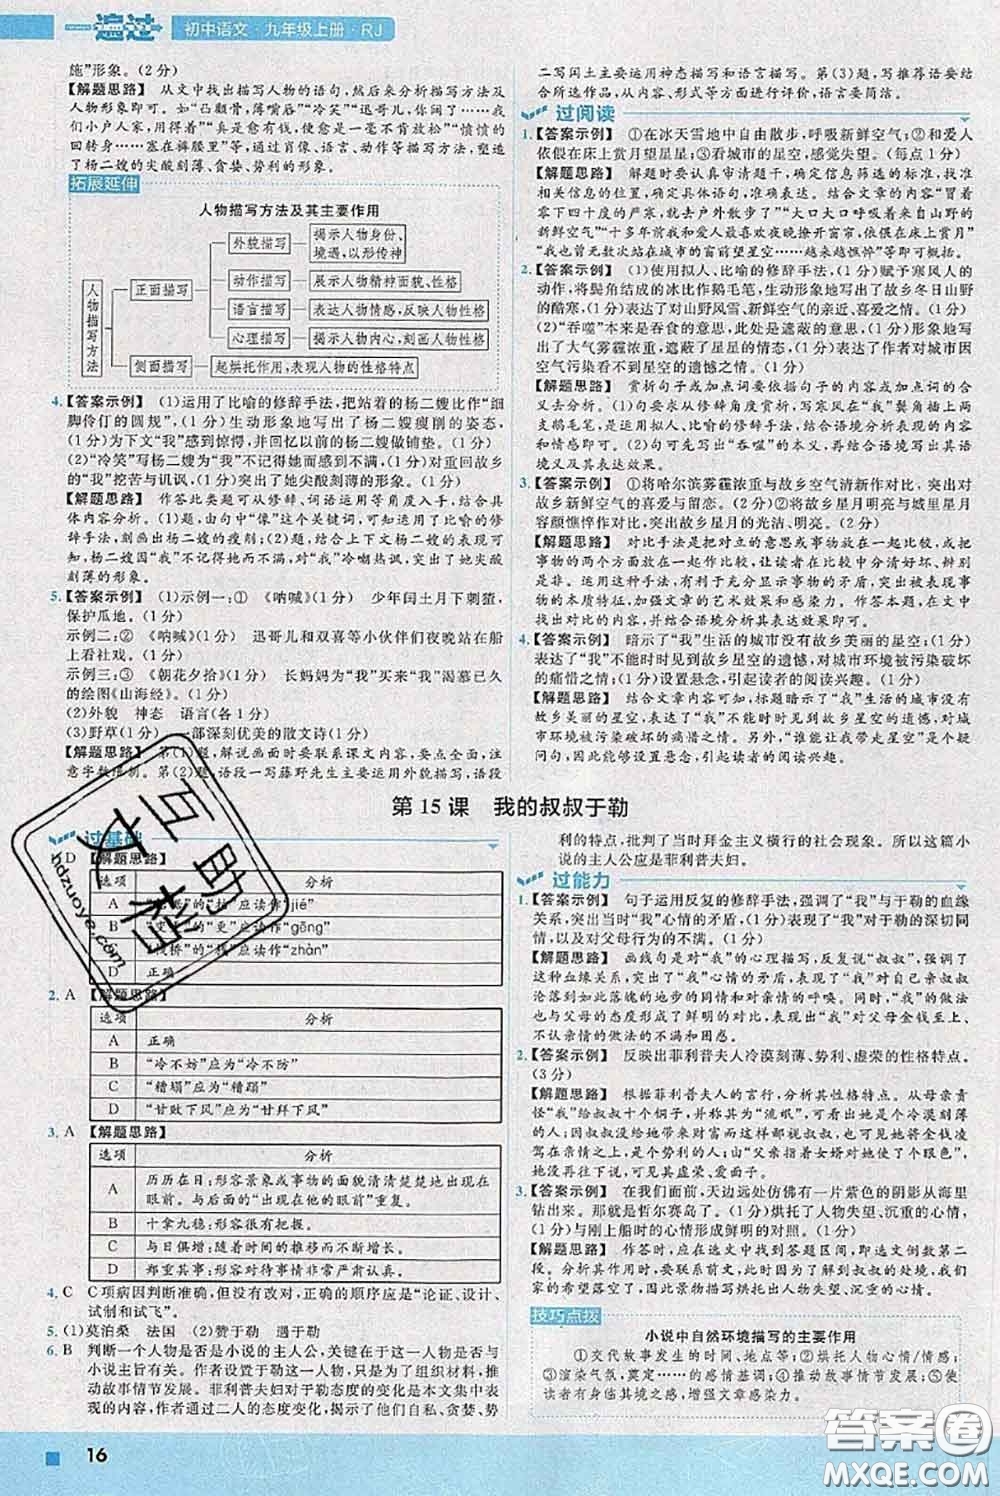 一遍过 初中语文·九年级上册·RJ
施”形象。(2分)
【解题思路】 从文中找出描写人物的语句,然后来分析描写方法及
人物形象即可。如“凸颧骨,薄嘴唇”“冷笑”“迅哥儿,你阔了……我
们小户人家,用得着”“真是愈有钱,便愈是一毫不肯放松”“愤愤的
回转身……塞在裤腰里”,通过肖像、语言、动作等描写方法,塑造
了杨二嫂的尖酸刻薄、贪婪、势利的形象。
拓展延伸
人物描写方法及其主要作用
人物描写方法
正面描写
外貌描写
揭示人物身份、
境遇,以形传神
动作描写
展示人物精神面貌、性格
语言描写
表达人物情感,反映人物性格
心理描写
揭示人物内心,刻画人物性格
侧面描写
起烘托作用,表现人物的性格特点
4.【答案示例】 (1)运用了比喻的修辞手法,把站着的杨二嫂比作“细
脚伶仃的圆规”,(1分)生动形象地写出了杨二嫂瘦削的姿态,
(1分)为下文“我”感到惊愕,并回忆以前的杨二嫂做铺垫。(1分)
(2)“冷笑”写杨二嫂为“我”不记得她而感到不满,(1分)对重回故乡
的“我”挖苦与讥讽,(1分)突出了她尖酸刻薄的形象。(1分)
【解题思路】 作答此类题可从修辞、词语运用等角度入手,结合具
体内容分析。(1)题,由句中“像”这个关键词,可知运用了比喻的修
辞手法,刻画出杨二嫂的瘦削;(2)题,结合上下文杨二嫂的表现可
知,杨二嫂因“我”不记得她而不满,对“我”冷嘲热讽,突出了她尖酸
刻薄的形象。
5.【答案示例】 (1)示例一:① 《呐喊》(1分) 少年闰土月下刺猹,
保护瓜地。(1分)
示例二:② 《呐喊》(1分) 迅哥儿和双喜等小伙伴们夜晚站在船
上看社戏。(1分)
示例三:③ 《朝花夕拾》(1分) 长妈妈为“我”买来“我”渴慕已久
的绘图《山海经》。(1分)
(2)外貌 神态 语言(各1分)
(3)野草(1分) 一部深刻优美的散文诗(1分)
【解题思路】 第(1)题,解说画面时要联系课文内容,要点全面,注
意字数限制。第(2)题,语段一写藤野先生主要运用外貌描写,语段
二写闰土主要运用神态描写和语言描写。第(3)题,写推荐语要结
合所选作品,从内容、形式等方面进行评价,语言要简洁。
过阅读
1.【答案示例】 ①在冰天雪地中自由散步,呼吸新鲜空气;②和爱人
依偎在床上赏月望星星;③看城市的星空,感觉失望。(每点1分)
【解题思路】 解题时要认真审清题干,确定信息筛选的标准,找准
相关信息的位置,确定具体语句,准确表达。结合文章的内容“冒着
零下四十度的严寒,就去户外散步了”“大口大口呼吸着来自山野的
新鲜空气”“十多年前我和爱人最喜欢夜晚撩开窗帘,依偎在床上赏月”
“我也曾无数次站在城市的窗前望星空……越来越憔悴”等即可概括。
2.【答案示例】 (1)使用拟人、比喻的修辞手法,(1分)赋予寒风人的
动作,将鬓角结成的冰比作鹅毛笔,生动形象地写出了故乡冬日山野
的酷寒,(1分)表达了对山野风雪、新鲜空气的亲近、喜爱之情。(1分)
(2)“吞噬”本来是吞食的意思,此处是遮蔽的意思,(1分)形象地写
出了大气雾霾浓重,遮蔽了星星的情态,(1分)表达了作者对城市因
空气污染看不到星空的遗憾之情。(1分)
【解题思路】 赏析句子或加点词要依据句子的内容或加点词的含
义去赏析。(1)句要求从修辞角度赏析,写寒风在“我”鬓角插上两
支鹅毛笔,是运用拟人、比喻的修辞手法,结合语境分析表现的内容
和表达的情感即可。(2)句可先写出“吞噬”的本义,再结合语境写出其
语境义及表达效果。
3.【答案示例】 ①将哈尔滨雾霾浓重与故乡空气清新作对比,突出对
故乡新鲜空气的喜爱与留恋。(2分)②将故乡星月明亮与城市星月
容颜憔悴作对比,突出故乡星月的光洁、明亮。(2分)
【解题思路】 对比手法是把对立的意思或事物放在一起作比较,或把
事物的两个方面放在一起作比较,让读者在比较中分清好坏、辨别
是非。运用这种手法,有利于充分显示事物的矛盾,突出被表现事物
的本质特征,加强文章的艺术效果和感染力。作答本题,应在文中
找出对比的内容,并结合语境分析表达效果即可。
4.【答案示例】 暗示了“我”生活的城市没有故乡美丽的星空;(1分)
表达了“我”不能时时见到故乡星空的遗憾,对城市环境被污染破坏
的痛惜之情;(1分)设置悬念,引起读者的阅读兴趣。(1分)
【解题思路】 结合文章内容可知,标题暗示了“我”生活的城市没
有故乡美丽的星空,表达了“我”不能时时见到故乡星空的遗憾,对城
市环境被污染破坏的痛惜之情。另外,“谁能让我带走星空”是一个疑
问句,可以起到设置悬念,引起读者阅读兴趣的作用。
第15课 我的叔叔于勒
过基础
1.D 【解题思路】
选项 分析
A 应读作“jié”
B “更”应读作“gēng”
C “栈桥”的“栈”应读作“zhàn”
D 正确
2. A 【解题思路】
选项 分析
A 正确
B “冷不妨”应为“冷不防”
C “糟塌”应为“糟蹋”
D “甘败下风”应为“甘拜下风”
3. A 【解题思路】
选项 分析
A 历历在目:形容景象或事物的面貌清清楚楚地出现在
眼前。与后面的“出现在他的眼前”重复。
B 十拿九稳:形容很有把握。
C 与日俱增:随着时间的推移而不断增长。
D 郑重其事:形容对待事情非常严肃认真。
4. C C项病因判断准确,但没有改对,正确的顺序应是“论证、设计、
试制和试飞”。
5. (1)莫泊桑 法国 (2)赞于勒 遇于勒
6. B 判断一个人物是否是小说的主人公,关键在于这一人物是否与
小说主旨有关。作者设置于勒这一人物,只是为了组织材料,推动
故事情节发展。菲利普夫妇对于勒态度的变化是本文中集中表
现的内容。作者通过二人的态度变化,揭示了他们自私、贪婪、势
利的特点,批判了当时拜金主义横行的社会现象。所以这篇小
说的主人公应是菲利普夫妇。
过能力
1.【答案示例】 句子运用反复的修辞手法,强调了“我”与于勒的血缘
关系,突出当时“我”心情的矛盾,(1分)表现了“我”对于勒的深切同
情,以及对父母行为的不满。(1分)
【解题思路】 画线句是对“我”的心理描写,反复说“叔叔”,强调了
这种血缘关系,突出了“我”心情的矛盾,表现了“我”对自己亲叔叔
沦落到如此落魄的地步的同情和对亲情的呼唤。同时,“我”的做法
也与父母的态度形成了鲜明的对比,突出“我”对父母看重金钱、
不认亲情的做法的不满和困惑。
2.【答案示例】 反映出菲利普夫人冷漠刻薄、势利、虚荣的性格特点。
(3分)
【解题思路】 根据菲利普夫人的言行,分析其性格特点。从母亲责
怪“我”给叔叔十个铜子,并骂他为“流氓”,可以看出她的冷漠刻薄
的人;因叔叔没给她带来财富而这样对待他,可见她是一个只看重
财富,不重亲情的人,是个势利的人;“父亲指着女婿对她使了个眼色”,
她没再往下说,可见其虚荣、爱面子。
3.【答案示例】 在我们面前,天边远处仿佛有一片紫色的阴影从海里
钻出来。那就是哲尔赛岛了。(1分)烘托了人物失望、沉重的心情,
(1分)与刚上船时的心情形成鲜明的对照。(1分)
【解题思路】 作答时,应在选文中找到答题区间,即选文倒数第二
段。分析其作用时,要联系前文。此时,因为了解到了叔叔的境况,我们
家的希望落空了,因此景物描写烘托出人物失望、沉重的心情。
技巧点拨
小说中自然环境描写的主要作用
①交代故事发生的时间、地点等;②烘托人物心情/情感;
③渲染气氛,奠定……的感情基调;④推动故事情节发展;⑤使
读者有身临其境之感,增强文章感染力。
16
互助文档
hdzuoye.com
答案圈
MXQE.COM